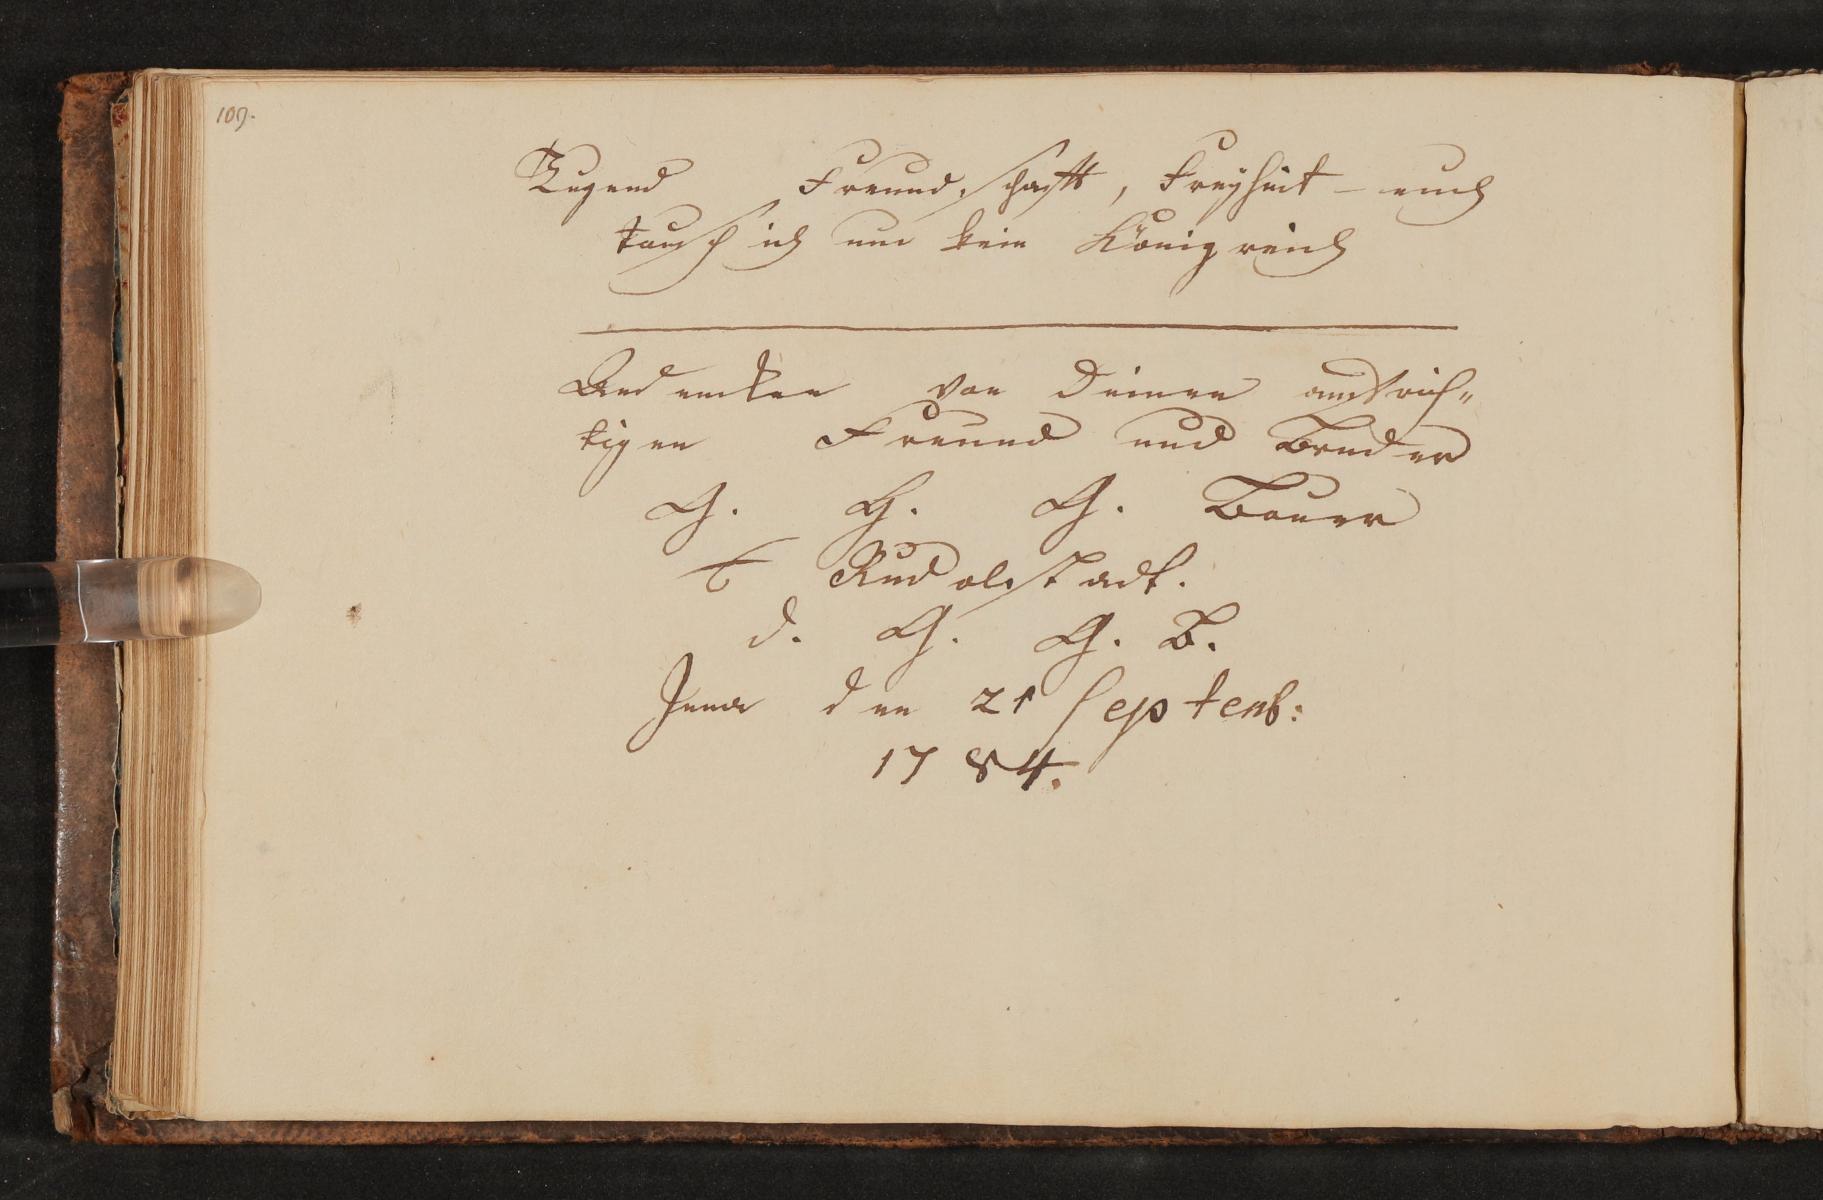 109.
Tugend Freundschafft, Freyheit – euch
tausch ich um kein Königreich
Andencken von Deinen aufrich=
tigen Freund und Bruder
G. H. G. Bauer
Rudolstadt.
d. G. G. B.
Jena den 21 Septemb:
1784.